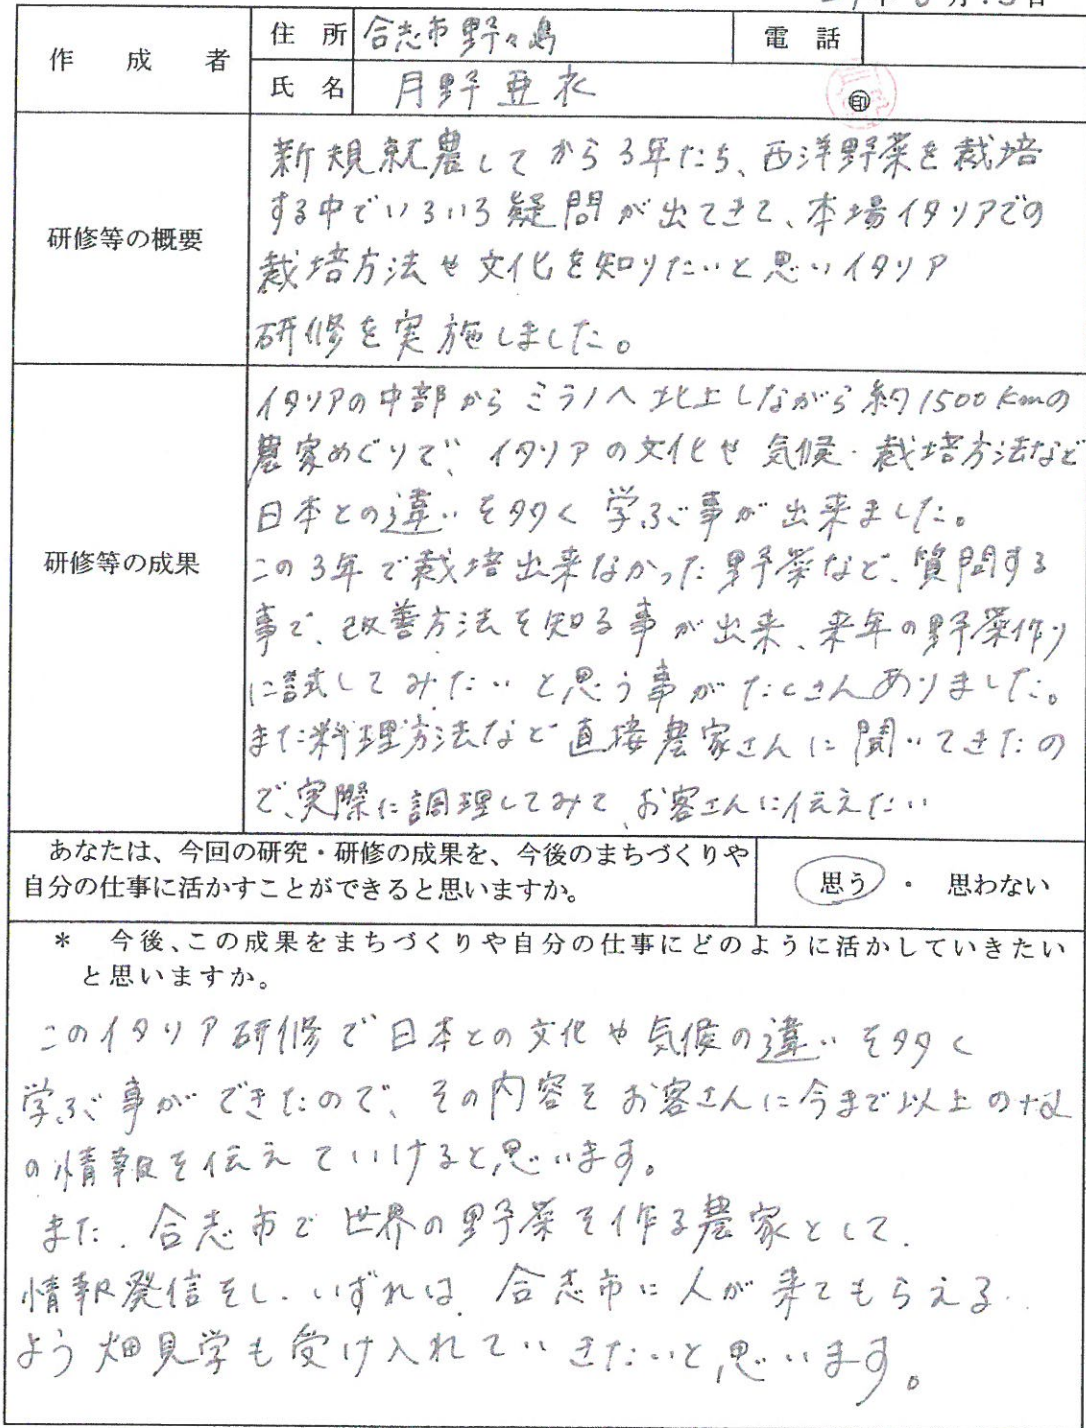 作成者
住所 合志市野々島
電話
氏名 月野亜衣
印
研修等の概要
新規就農してから3年たち、西洋野菜を栽培
する中でいろいろ疑問が出てきて、本場イタリアでの
栽培方法や文化を知りたいと思いイタリア
研修を実施しました。
研修等の成果
イタリアの中部からミラノへ北上しながら約1500kmの
農家めぐりで、イタリアの文化や気候・栽培方法など
日本との違いを多く学ぶ事が出来ました。
この3年で栽培出来なかった野菜など、質問する
事で、改善方法を知る事が出来、来年の野菜作り
に試してみたいと思う事がたくさんありました。
また料理方法など直接農家さんに聞いてきたの
で、実際に調理してみて、お客さんに伝えたい
あなたは、今回の研究・研修の成果を、今後のまちづくりや
自分の仕事に活かすことができると思いますか。
思う ・ 思わない
* 今後、この成果をまちづくりや自分の仕事にどのように活かしていきたい
と思いますか。
このイタリア研修で日本との文化や気候の違いを多く
学ぶ事ができたので、その内容をお客さんに今まで以上の
の情報を伝えていけると思います。
また、合志市で世界の野菜を作る農家として、
情報発信をし、いずれは、合志市に人が来てもらえる
よう畑見学も受け入れていきたいと思います。